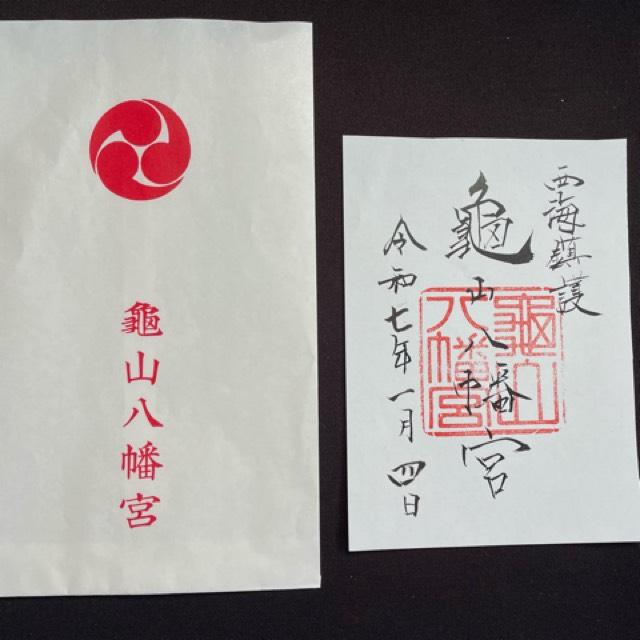 龜山八幡宮
西海鎮護
龜山八幡宮
令和七年一月四日
龜山
八幡宮